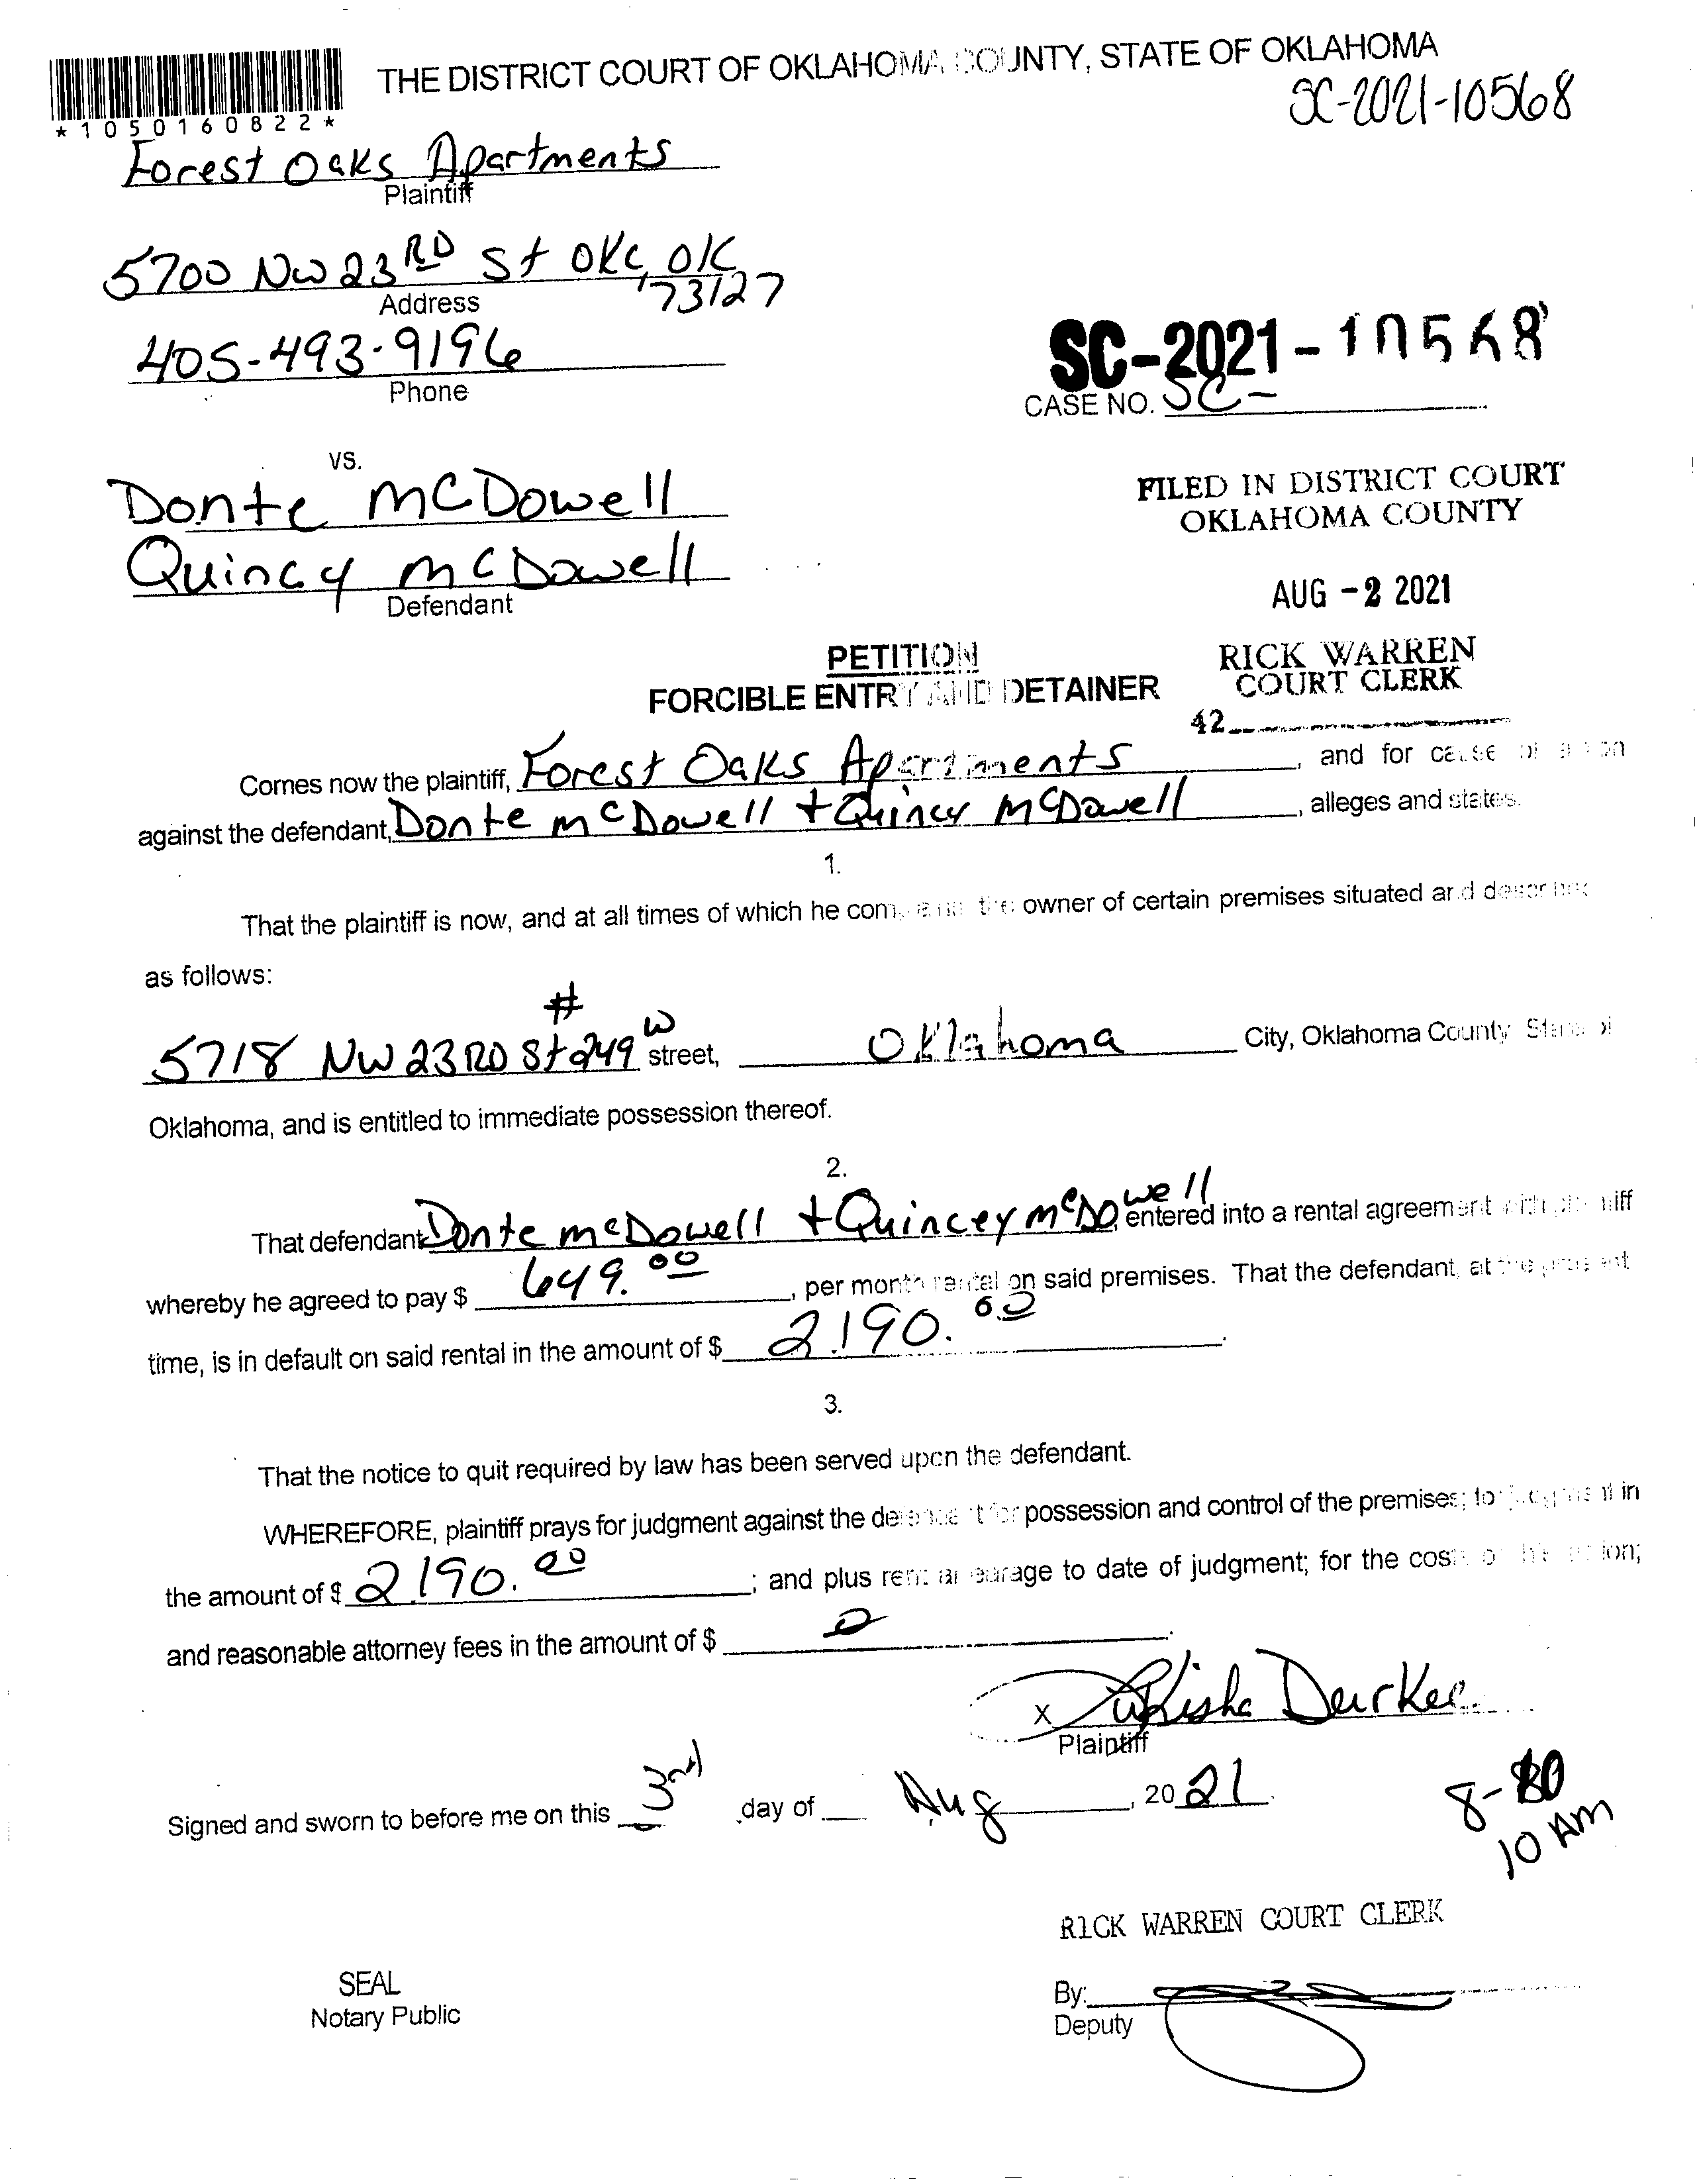 THE DISTRICT COURT OF OKLAHOMA COUNTY, STATE OF OKLAHOMA
SC-2021-10568
*1050160822*
Forest Oaks Apartments
Plaintiff
5700 NW 23RD St OKC, OK
73127
Address
405-493-9196
Phone
SC-2021-10568
CASE NO. SC-
vs.
Donte McDowell
Quincy McDowell
Defendant
FILED IN DISTRICT COURT
OKLAHOMA COUNTY
AUG -2 2021
RICK WARREN
COURT CLERK
42
PETITION
FORCIBLE ENTRY AND DETAINER
Comes now the plaintiff, Forest Oaks Apartments, and for cause of action
against the defendant, Donte McDowell + Quincy McDowell, alleges and states.
1.
That the plaintiff is now, and at all times of which he the owner of certain premises situated and described
as follows:
5718 NW 23RD St #249 W street, Oklahoma City, Oklahoma County State of
Oklahoma, and is entitled to immediate possession thereof.
2.
That defendant Donte McDowell + Quincey McDowell, entered into a rental agreement with plaintiff
whereby he agreed to pay $ 649.00, per month rental on said premises. That the defendant, at the present
time, is in default on said rental in the amount of $ 2190.00.
3.
That the notice to quit required by law has been served upon the defendant.
WHEREFORE, plaintiff prays for judgment against the defendant for possession and control of the premises; for judgment in
the amount of $ 2190.00; and plus rent arrearage to date of judgment; for the costs of this action;
and reasonable attorney fees in the amount of $ 0.
x Durkee
Plaintiff
Signed and sworn to before me on this day of Aug, 2021.
8-
10 AM
RICK WARREN COURT CLERK
SEAL
Notary Public
By:
Deputy